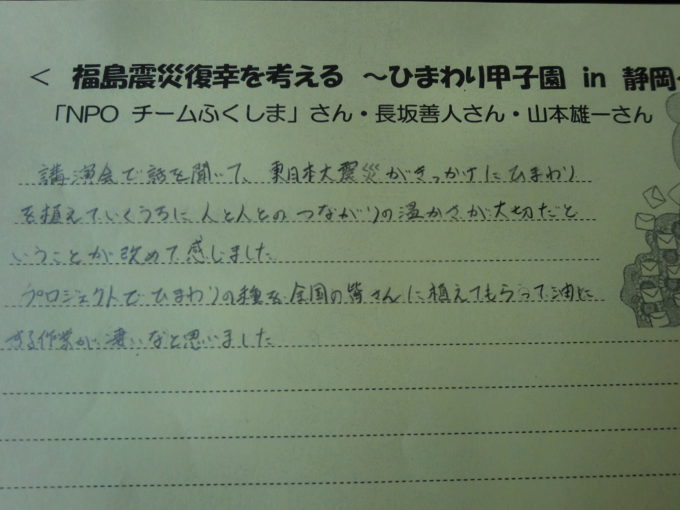 < 福島震災復幸を考える ～ひまわり甲子園 in 静岡～
「NPO チームふくしま」さん・長坂善人さん・山本雄一さん
講演会で話を聞いて、東日本大震災がきっかけにひまわり
を植えていくうちに人と人とのつながりの温かさが大切だと
いうことが改めて感じました
プロジェクトでひまわりの種を全国の皆さんに植えてもらって油に
する作業が凄いなと思いました